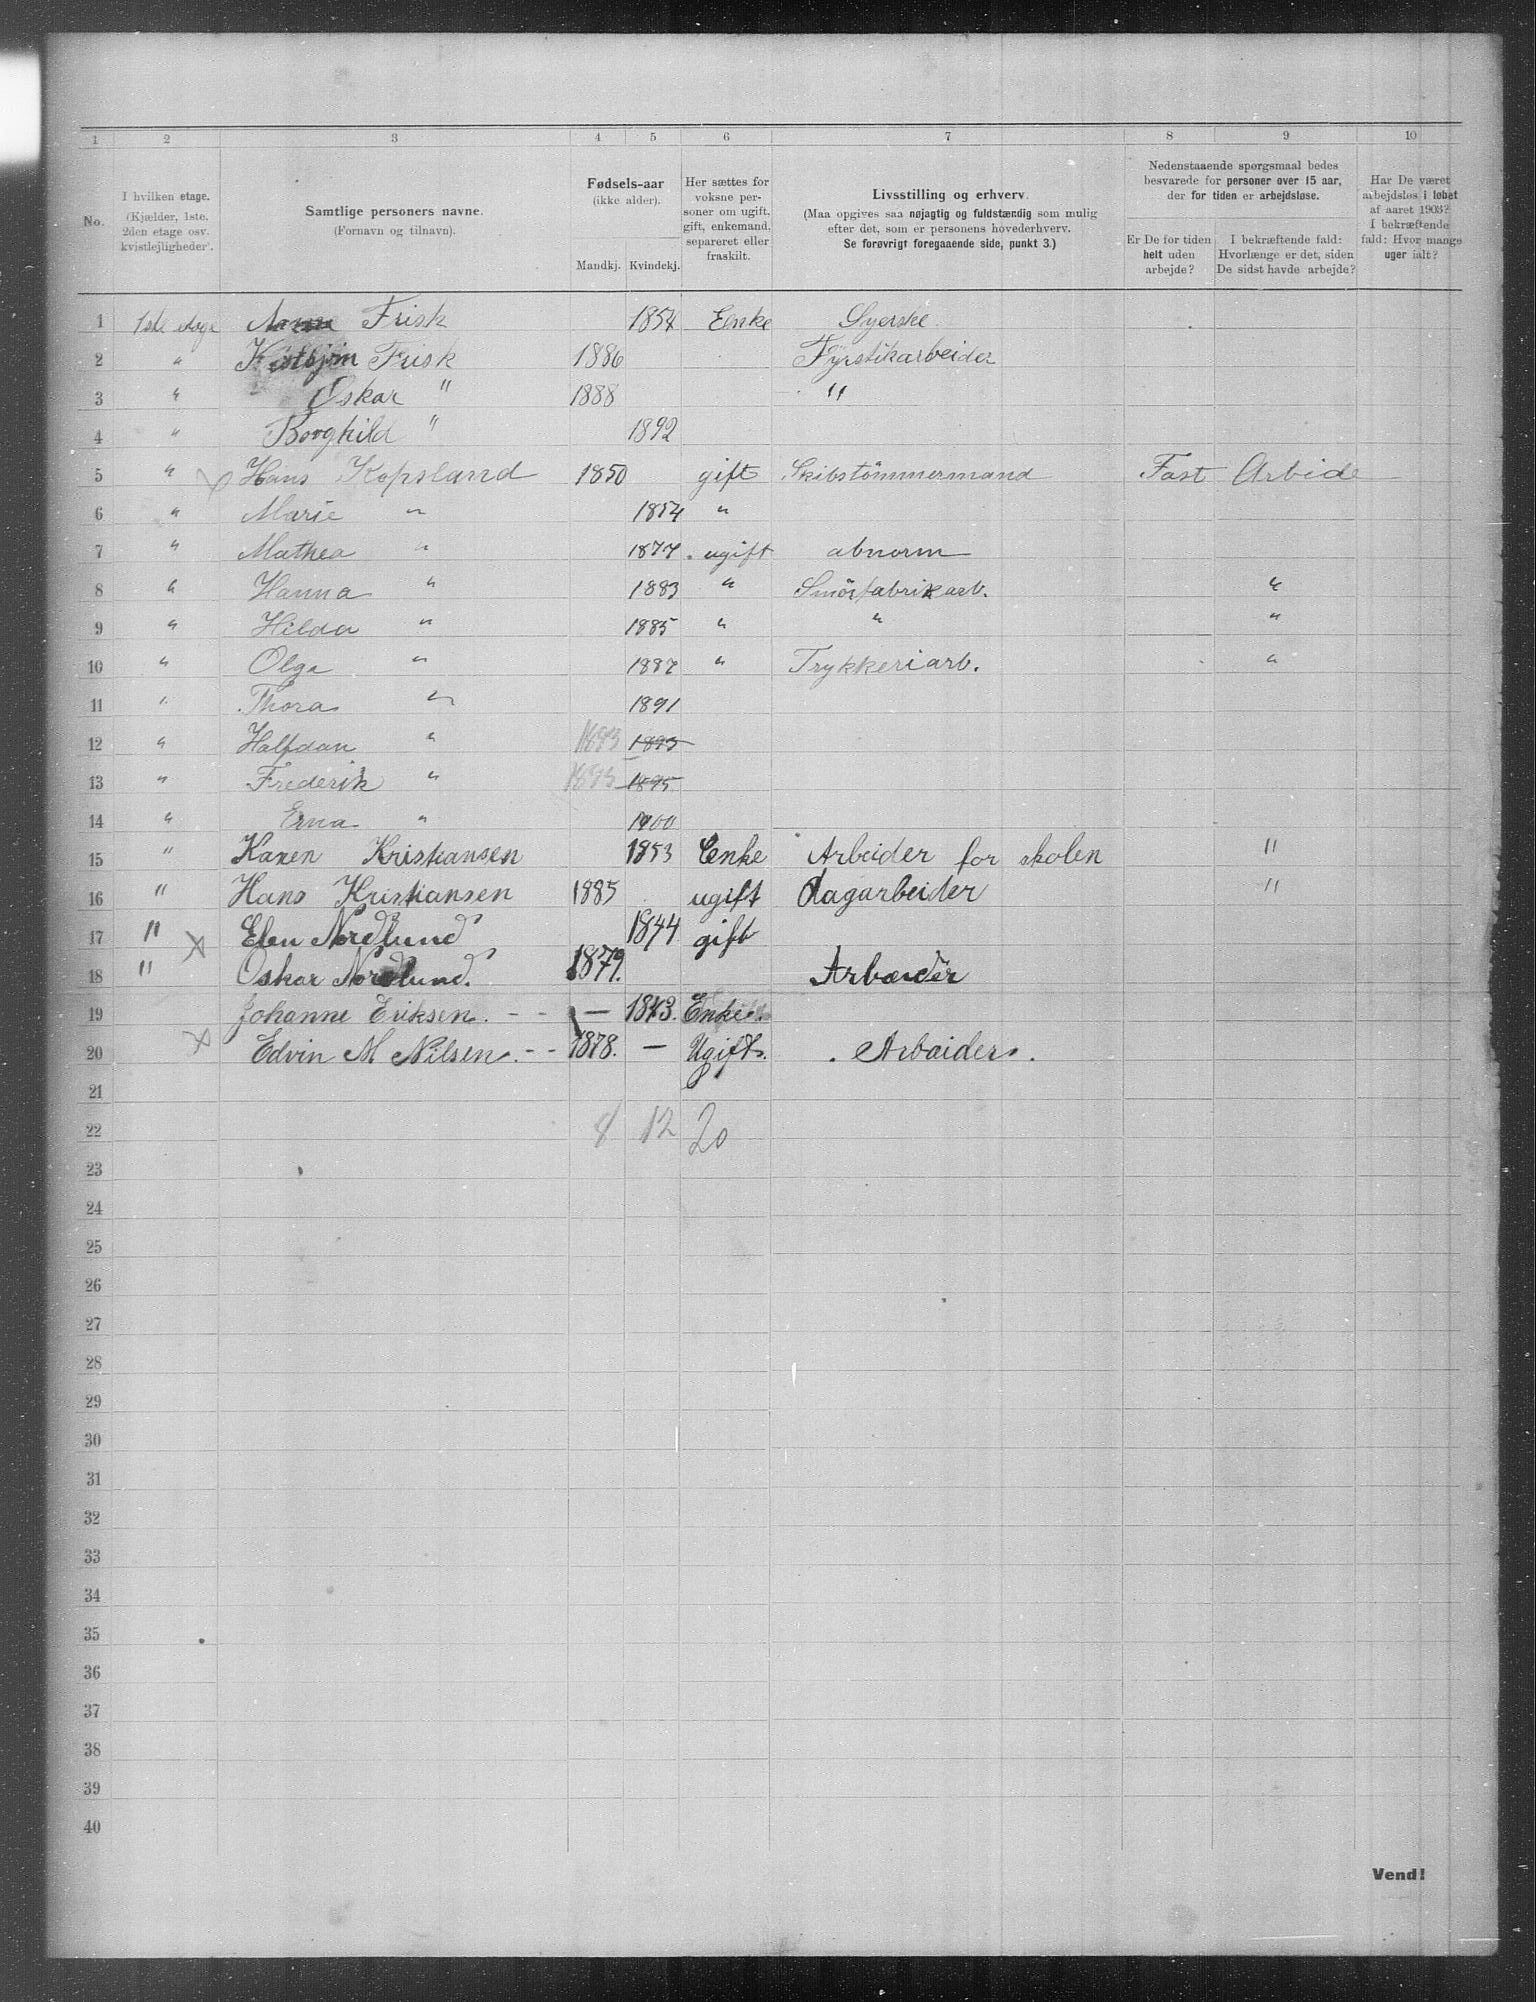 1 2 3 4 5 6 7 8 9 10
No.
I hvilken etage. (Kjælder, 1ste, 2den etage osv. kvistlejligheder).
Samtlige personers navne. (Fornavn og tilnavn).
Fødsels-aar (ikke alder). Mandkj. Kvindekj.
Her sættes for voksne personer om ugift, gift, enkemand, separeret eller fraskilt.
Livsstilling og erhverv. (Maa opgives saa nøjagtig og fuldstændig som mulig efter det, som er personens hovederhverv. Se forøvrigt foregaaende side, punkt 3.)
Nedenstaaende spørgsmaal bedes besvarede for personer over 15 aar, der for tiden er arbejdsløse.
Er De for tiden helt uden arbejde?
I bekræftende fald: Hvorlænge er det, siden De sidst havde arbejde?
Har De været arbejdsløs i løbet af aaret 1903? I bekræftende fald: Hvor mange uger ialt?
1 1ste etage Anna Frisk 1854 Enke Syerske
2 " Frisk 1886 Fyrstikarbeider
3 " Oskar " 1888 "
4 " Borghild " 1892
5 " Hans Kopsland 1850 gift Skibstömmermand Fast Arbide
6 " Marie " 1854 "
7 " Mathea " 1877 ugift abnorm
8 " Hanna " 1883 " Smörfabrikarb. "
9 " Hilda " 1885 " " "
10 " Olga " 1887 " Trykkeriarb. "
11 " Thora " 1891
12 " Halfdan " 1893 1893
13 " Frederik " 1895 1895
14 " Erna " 1900
15 " Karen Kristiansen 1853 Enke Arbeider for skolen "
16 " Hans Kristiansen 1885 ugift dagarbeider "
17 " Elen Nordlund 1844 gift
18 " Oskar Nordlund. 1879. Arbeider
19 Johanne Eriksen. - - — 1843. Enke.
20 Edvin M Nilsen. - - 1878. — Ugift. Arbeider.
21
22 8 12 20
23
24
25
26
27
28
29
30
31
32
33
34
35
36
37
38
39
40
Vend!